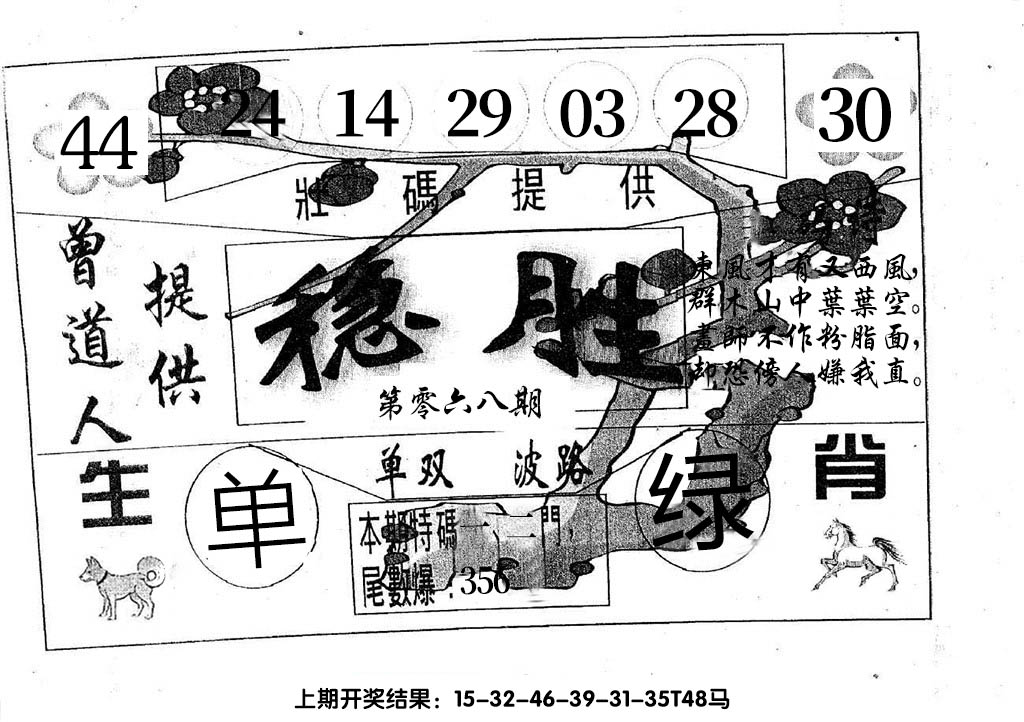 44 24 14 29 03 28 30
壯碼提供
特
曾道人
提供
稳胜
第零六八期
東風才有又西風，
群木山中葉葉空。
畫師不作粉脂面，
却恐傍人嫌我直。
单双 波路
生肖
单
绿
本期特碼一、二門，
尾數爆：356
上期开奖结果：15-32-46-39-31-35T48马